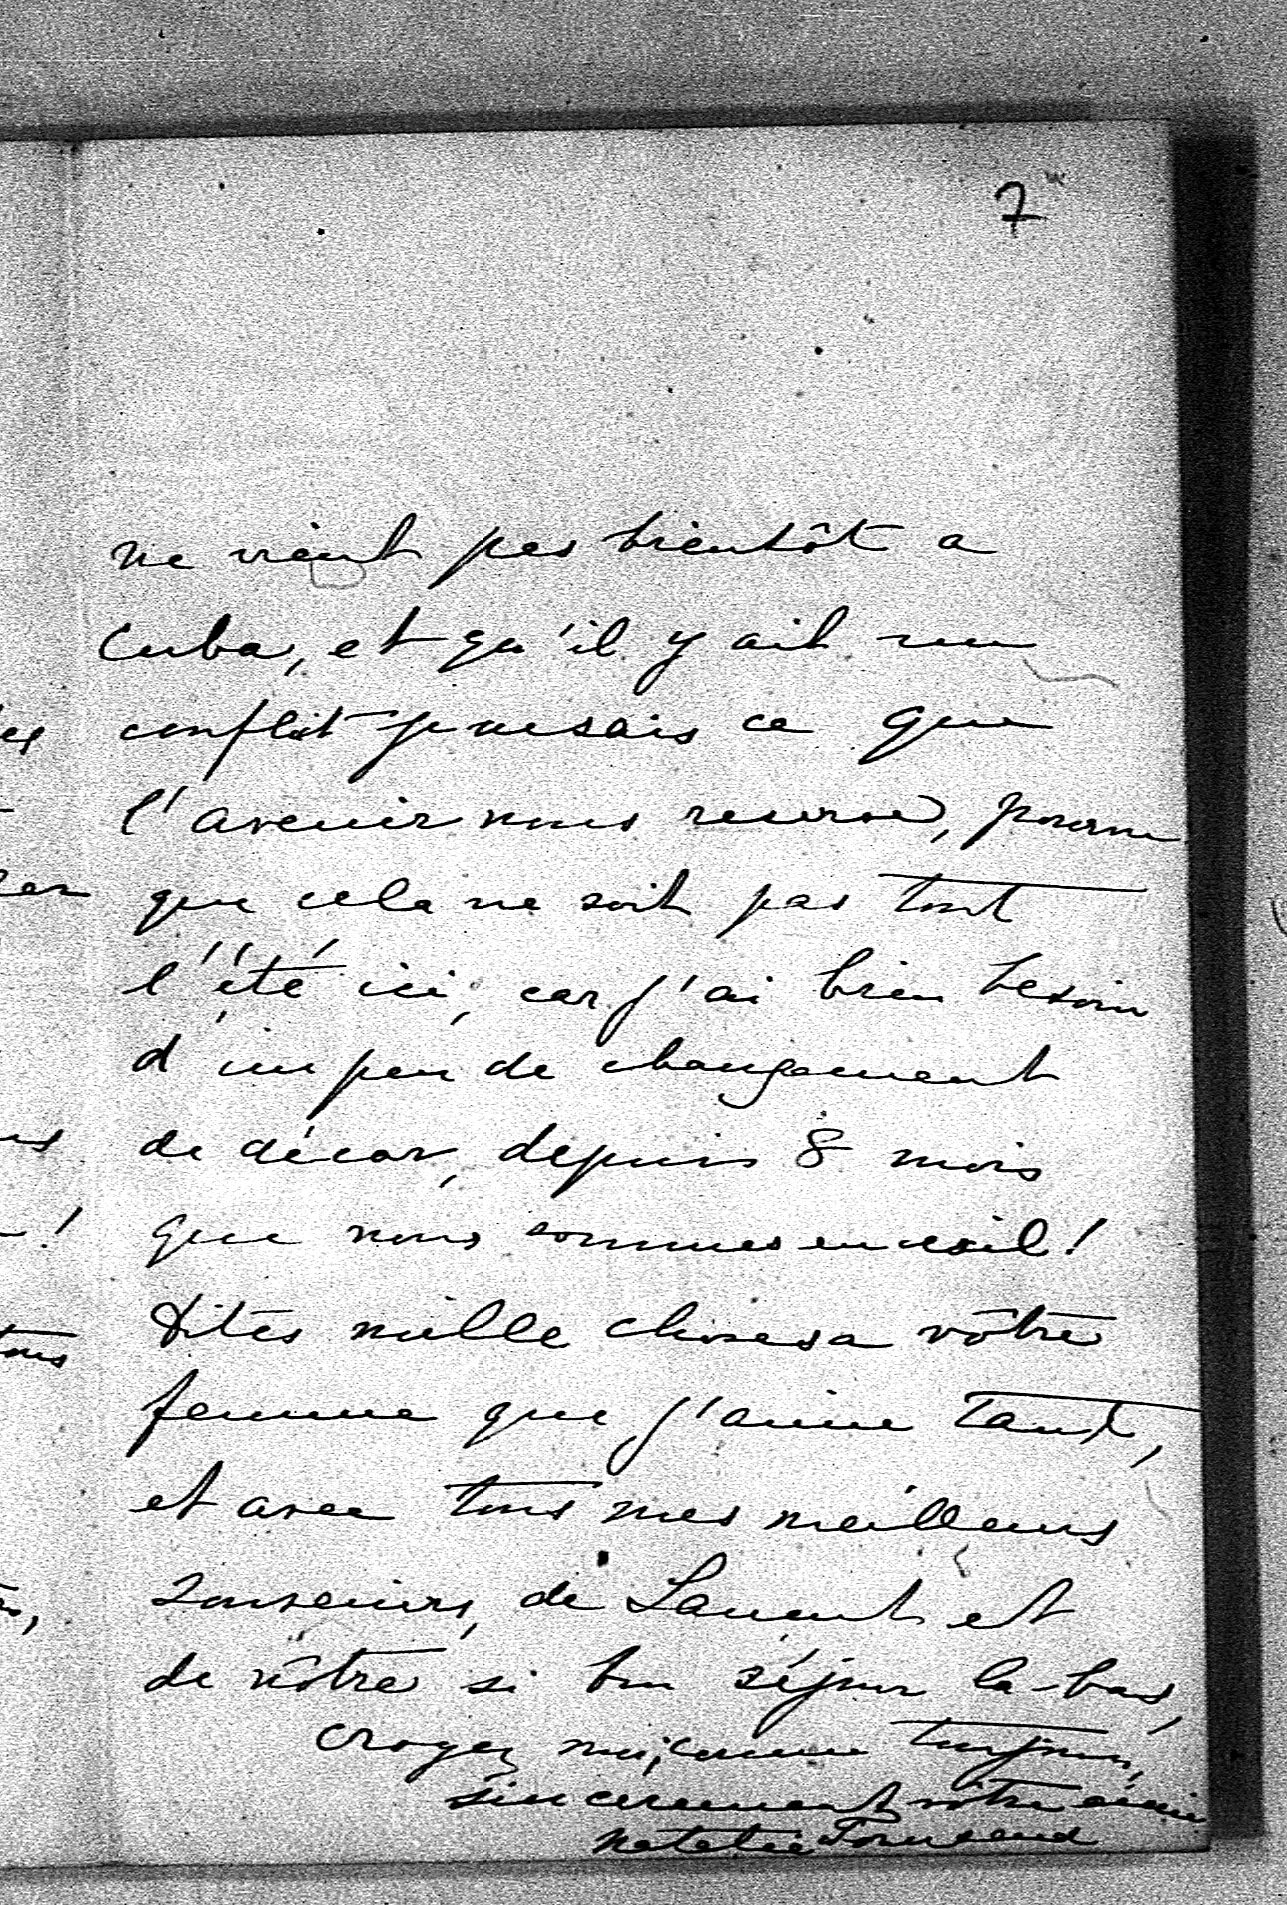 7
ne vient pas bientôt a
Cuba, et qu'il y ait un
conflit je ne sais ce que
l'avenir nous reserve, pourvu
que cela ne soit pas tout
l'été ici, car j'ai bien besoin
d'un peu de changement
de décor, depuis 8 mois
que nous sommes en exil!
Dites mille choses a vôtre
femme que j'aime tant,
et avec tous mes meilleurs
souvenirs, de Laurent et
de nôtre si bon séjour la-bas,
Croyez moi, comme toujours,
sincèrement vôtre amie
Natalie Townsend